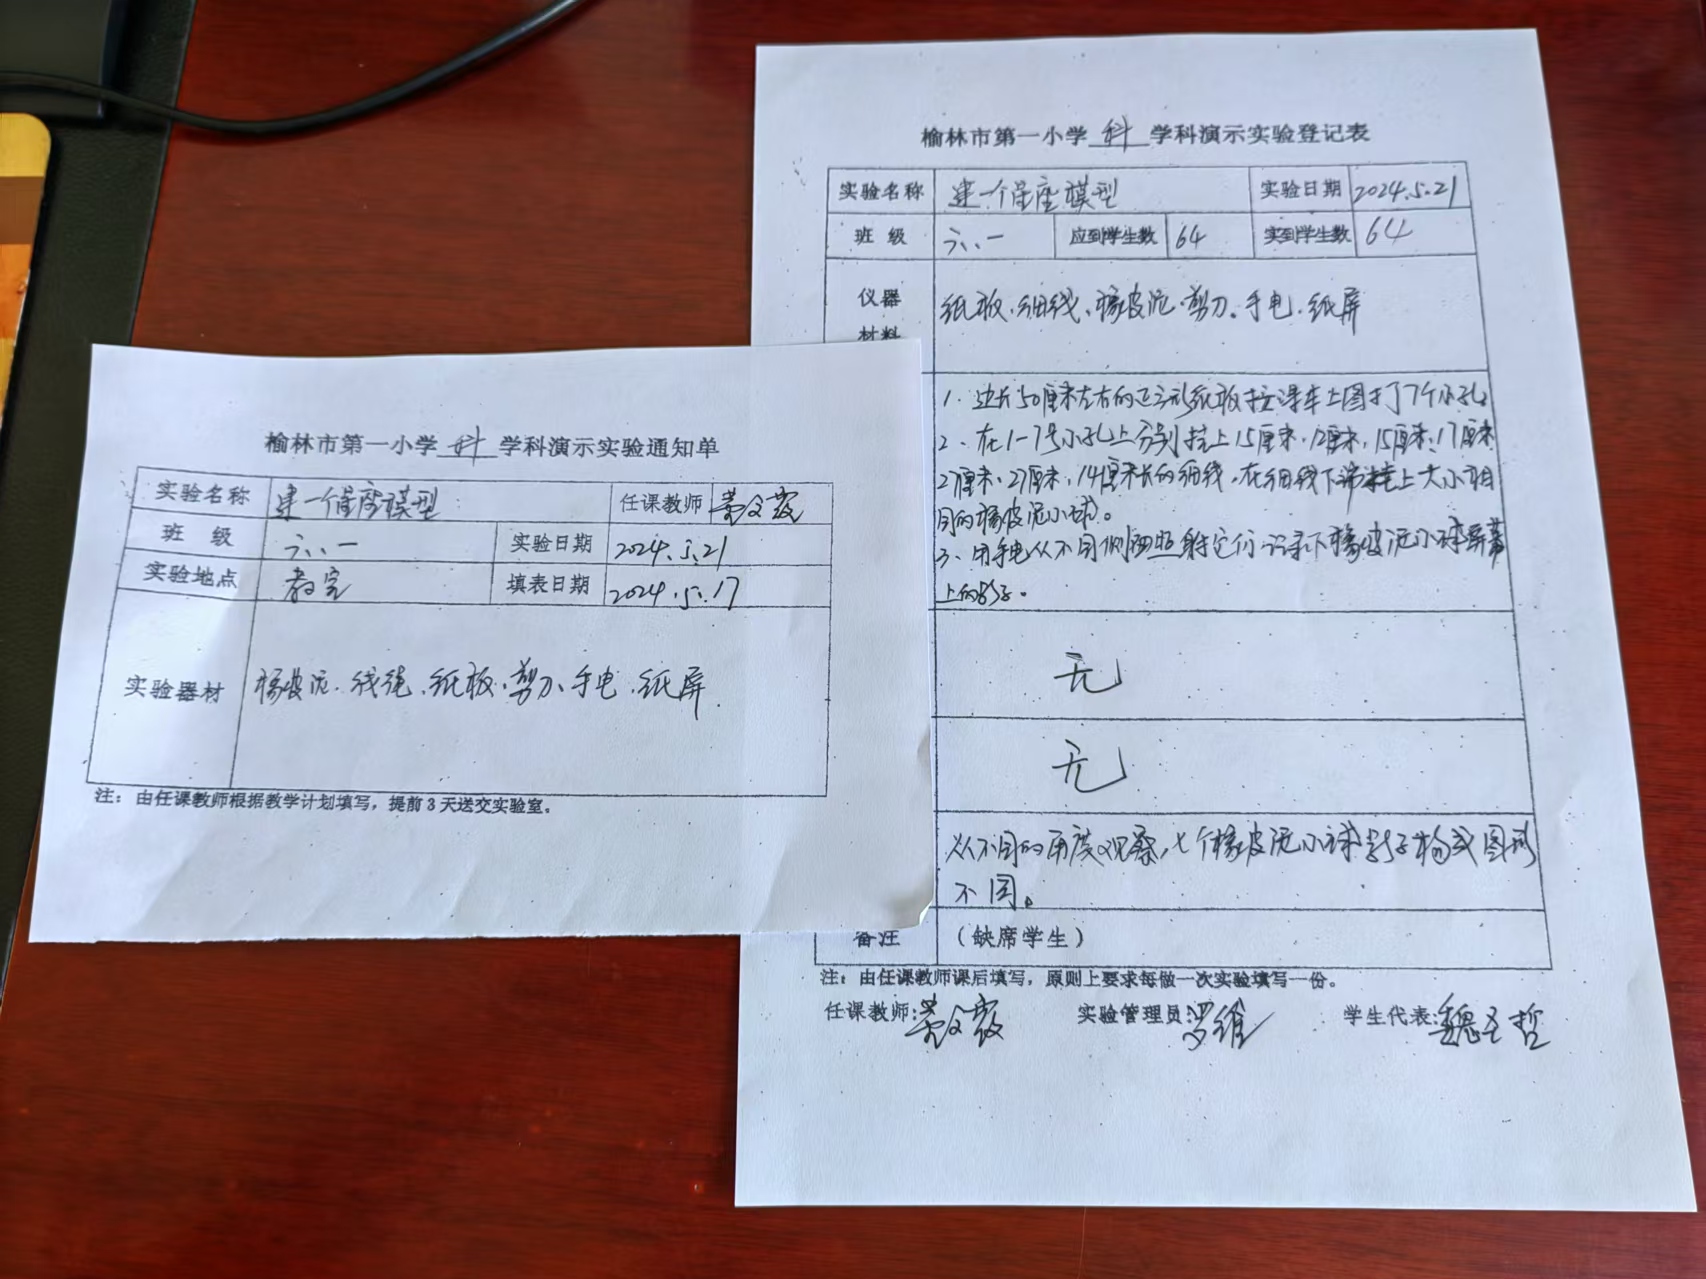 榆林市第一小学 科 学科演示实验通知单
实验名称 建一个星座模型 任课教师
班 级 六、一 实验日期 2024.5.21
实验地点 教室 填表日期 2024.5.17
实验器材 橡皮泥、线绳、纸板、剪刀、手电、纸屏
注：由任课教师根据教学计划填写，提前3天送交实验室。
榆林市第一小学 科 学科演示实验登记表
实验名称 建一个星座模型 实验日期 2024.5.21
班 级 六、一 应到学生数 64 实到学生数 64
仪器
材料
纸板、细线、橡皮泥、剪刀、手电、纸屏
1、边长50厘米左右的正方形纸板按课本上图打了7个小孔。
2、在1-7号小孔上分别挂上15厘米、12厘米、15厘米、17厘米
27厘米、27厘米、14厘米长的细线，在细线下端挂上大小相
同的橡皮泥小球。
3、用手电从不同侧面照射它们，记录下橡皮泥小球屏幕
上的影子。
无
无
从不同的角度观察，七个橡皮泥小球影子构成图形
不同。
备注 （缺席学生）
注：由任课教师课后填写，原则上要求每做一次实验填写一份。
任课教师： 实验管理员：罗维 学生代表：魏圣哲